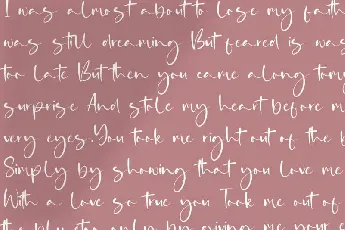 I was almost about to lose my faith
was still dreaming But feared is was
too late But then you came along to my
surprise And stole my heart before m
very eyes. You took me right out of the b
Simply by showing that you love me
With a love so true you Took me out of
the blue too only by giving me your